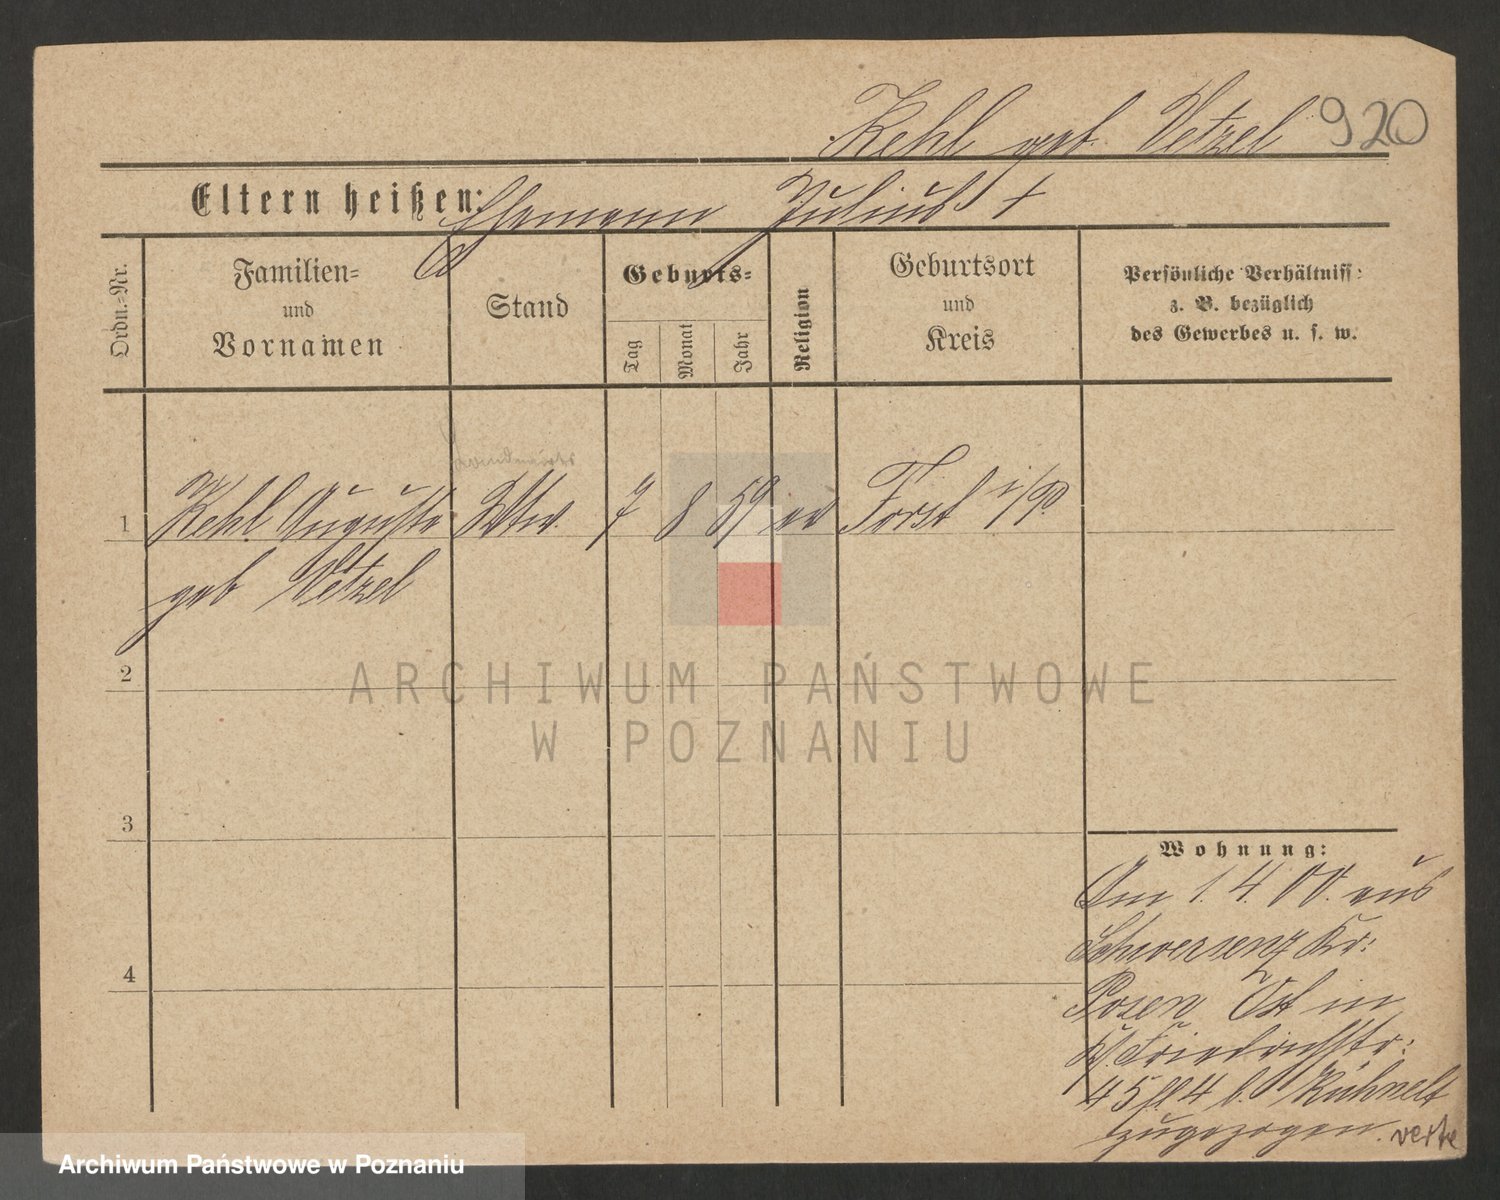 Kehl geb. Vetzel 920
Eltern heißen: Ehemann Julius †
Ordn.-Nr.
Familien-
und
Vornamen
Stand
Geburts-
Tag
Monat
Jahr
Religion
Geburtsort
und
Kreis
Persönliche Verhältniss:
z. B. bezüglich
des Gewerbes u. s. w.
1 Kehl Auguste Wtw. 7 8 59 ev Forst i/P.
geb Vetzel
2
3
4
Wohnung:
Am 1. 4. 00. aus
Schwersenz Kr:
Posen Ost in
Friedrichstr:
45 b. Kühnelt
zugezogen. verte
ARCHIWUM PAŃSTWOWE
W POZNANIU
Archiwum Państwowe w Poznaniu